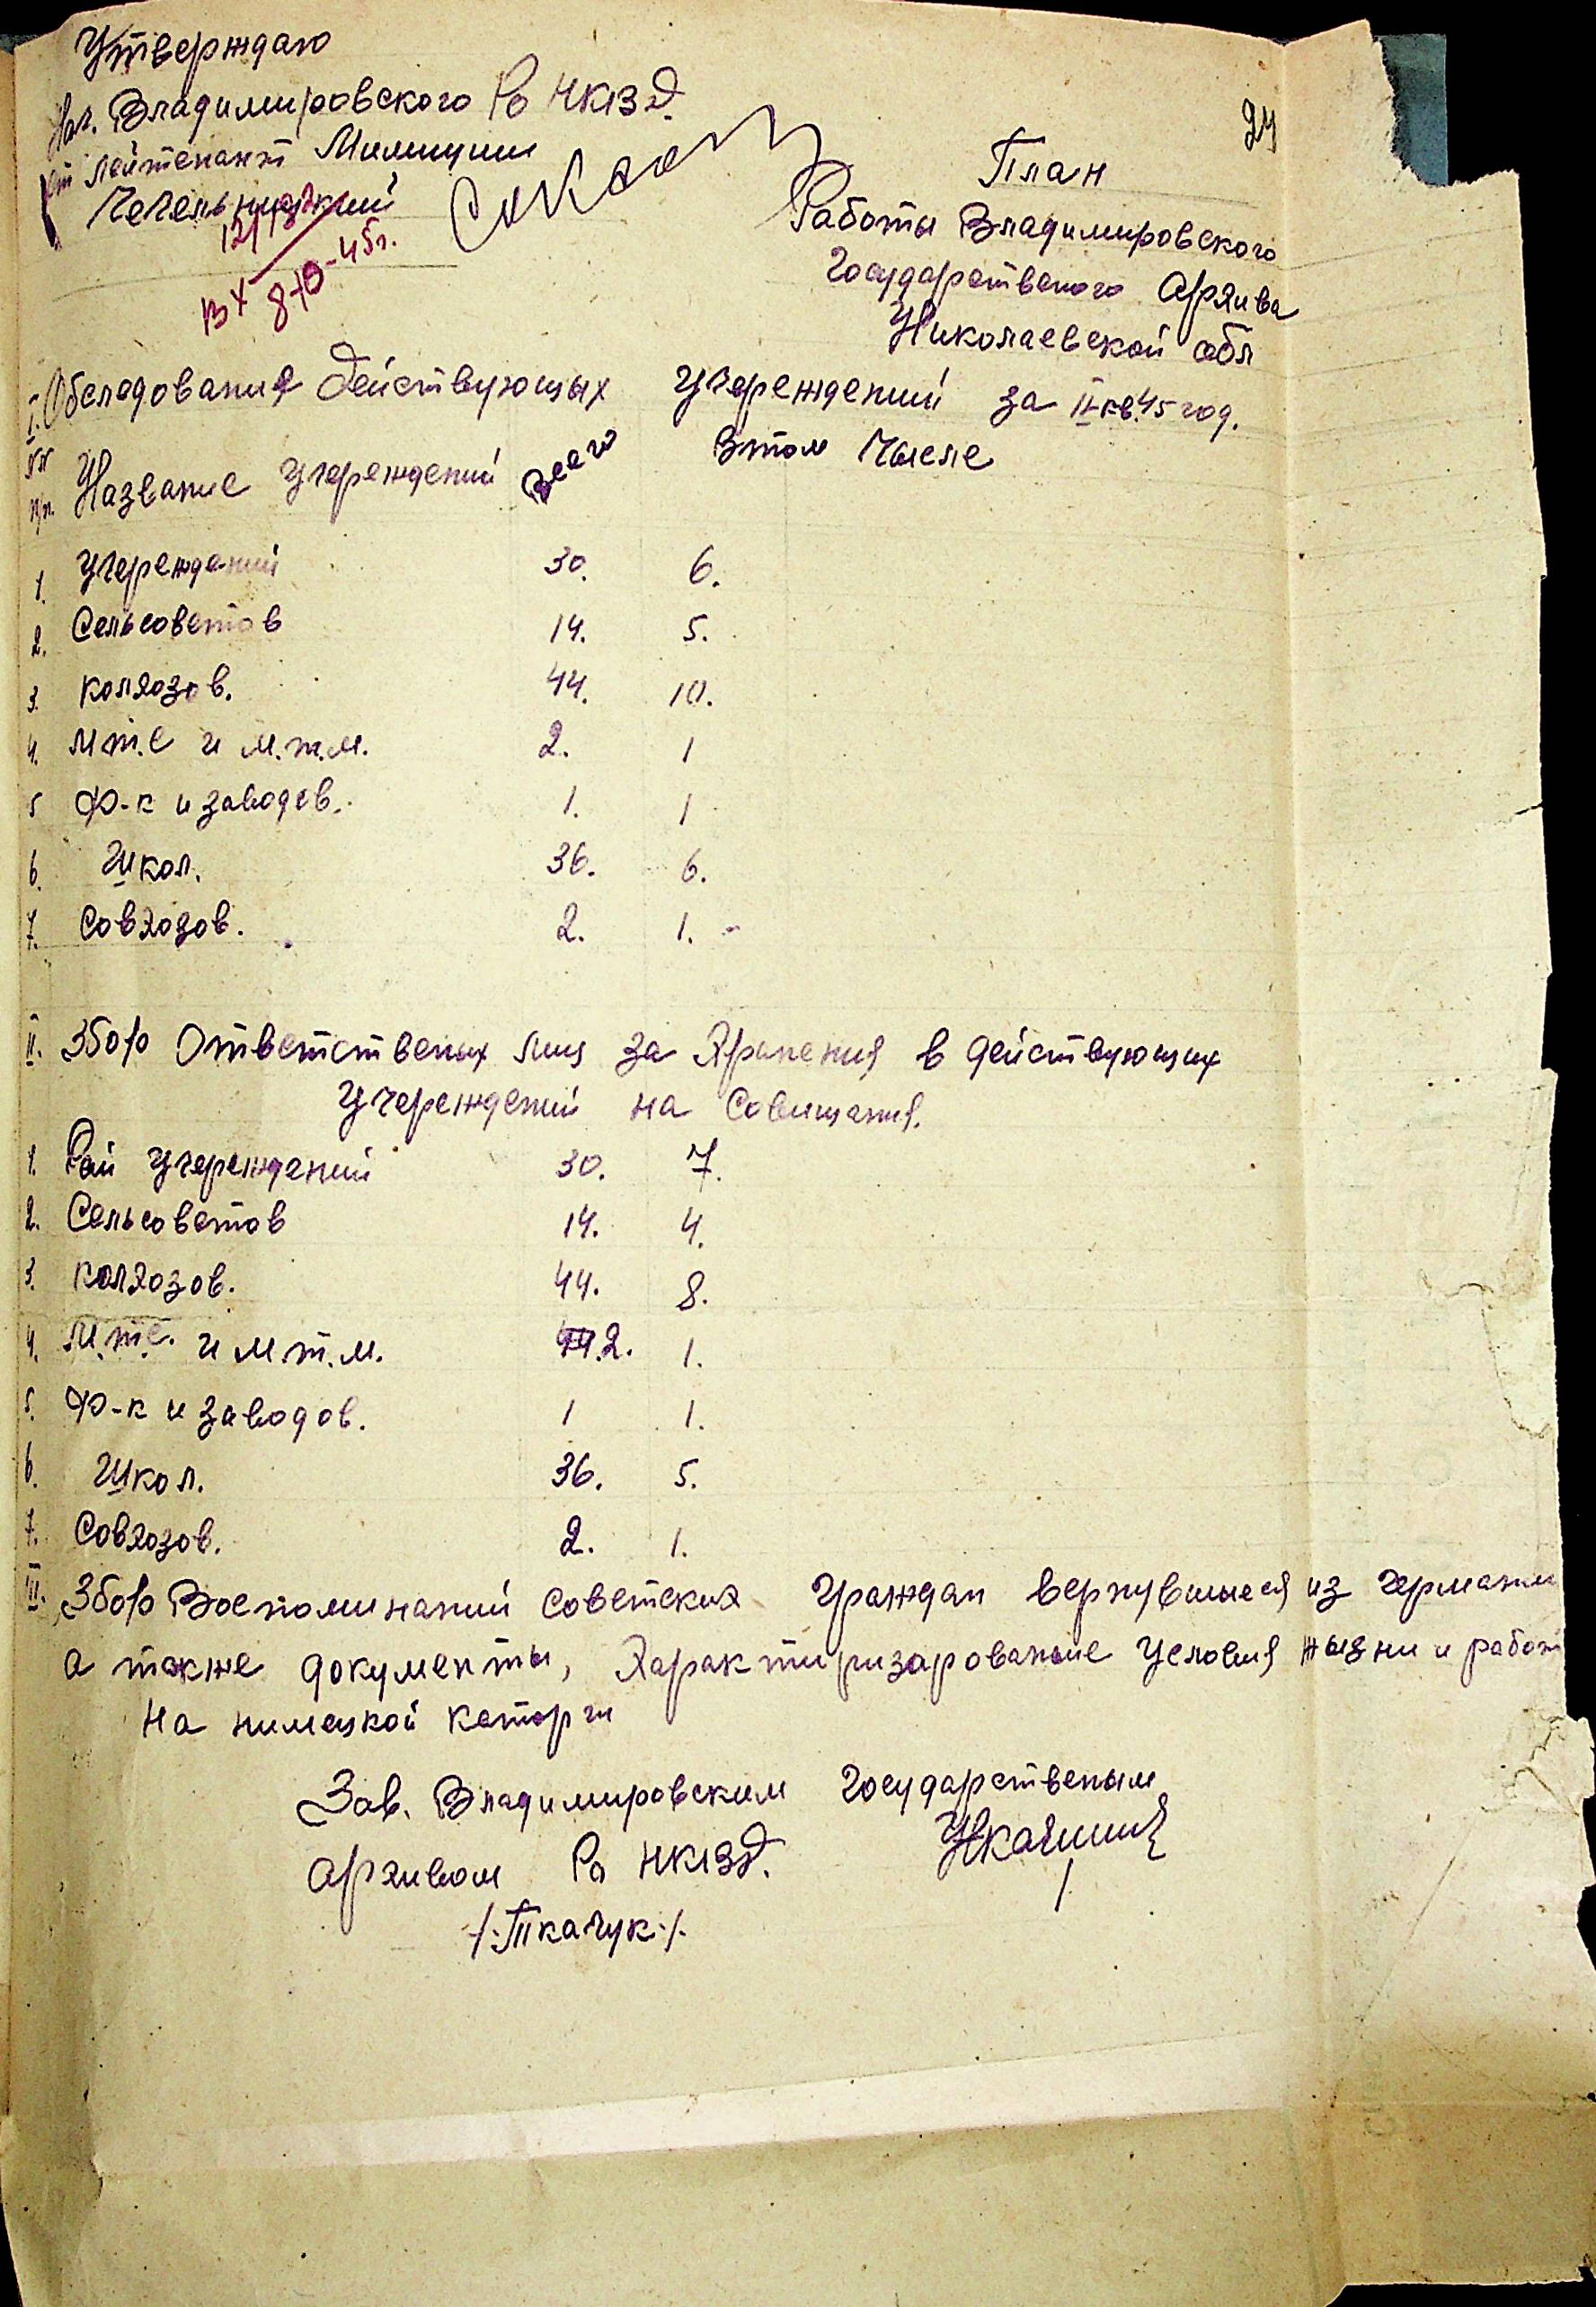 Утверждаю
Нач. Владимировского Ро НКВД.
ст лейтенант Милиции
Чечельницкий
Вх 8-10-45г.
24
План
Работы Владимировского
Государственого Архива
Николаевской обл
I. Обследование действующых учереждений за II кв. 45 год.
№№ п/п. Название учереждений Всего Втом Числе
1. учереждений 30. 6.
2. Сельсоветов 14. 5.
3. колхозов. 44. 10.
4. М.т.С и м.т.м. 2. 1
5 Ф-к и заводов. 1. 1
6. Школ. 36. 6.
7. Совхозов. 2. 1.
II. Збор Ответственых лиц за Хранения в действующих
Учереждений на Совищания.
1. Рай учереждений 30. 7.
2. Сельсоветов 14. 4.
3. колхозов. 44. 8.
4. М.т.С. и м.т.м. 2. 1.
5. Ф-к и заводов. 1 1.
6. Школ. 36. 5.
7. Совхозов. 2. 1.
III. Збор Воспоминаний Советских Граждан вернувшыеся из Германи
а также документы, Характиризарованые Условия жызни и работ
на нимецкой каторги
Зав. Владимировским Государственым
архивом Ро НКВД.
/:Ткачук:/.